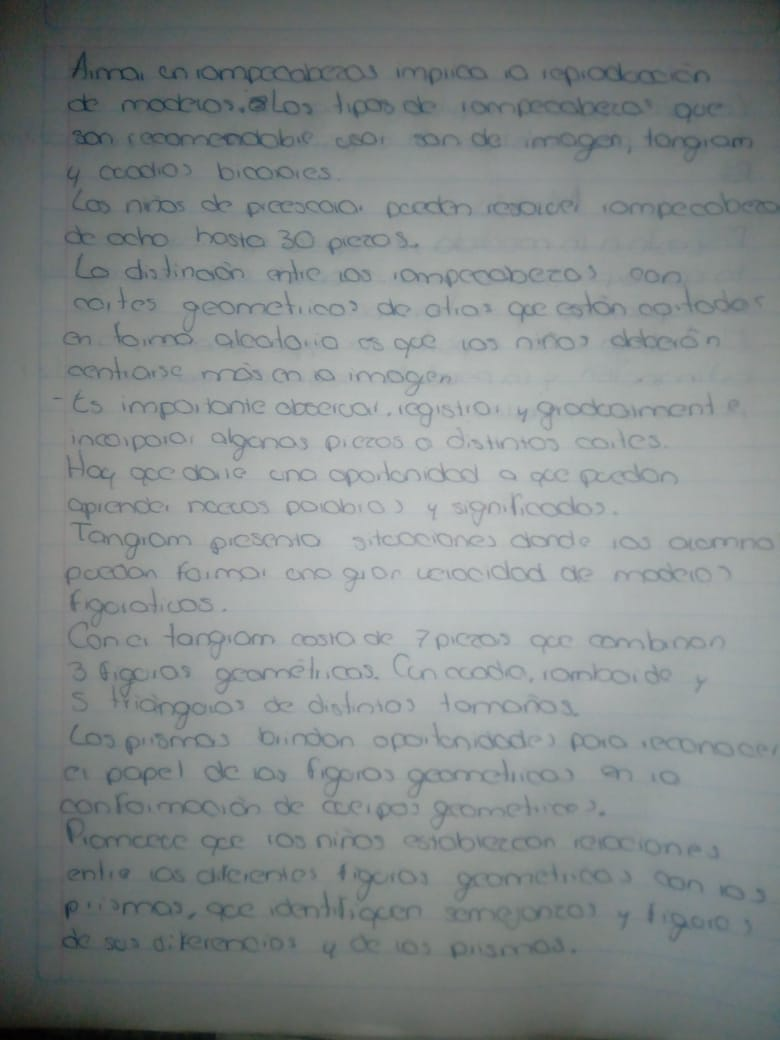 Armar en rompecabezas implica la reproducción
de modelos. Los tipos de rompecabezas que
son recomendable usar son de imagen, tangram
y cuadros bicolores.
Los niños de preescolar pueden resolver rompecabeza
de ocho hasta 30 piezas.
La distinción entre los rompecabezas con
cortes geometricos de otros que están cortados
en forma aleatoria es que los niños deberán
centrarse más en la imagen
- Es importante observar, registrar y gradualmente
incorporar algunas piezas a distintos cortes.
Hay que darle una oportunidad a que puedan
aprender nuevos palabras y significados.
Tangram presenta situaciones donde los alumno
puedan formar una gran velocidad de modelos
figurativos.
Con el tangram costa de 7 piezas que combinan
3 figuras geométricas. Cun cuadra, romboide y
5 triángulos de distintos tamaños.
Los prismas brindan oportunidades para reconocer
el papel de las figuras geometricas en la
conformación de cuerpos geometricos.
Promueve que los niños establezcan relaciones
entre las diferentes figuras geometricas con los
prismas, que identifiquen semejanzas y figuras
de sus diferencias y de los prismas.